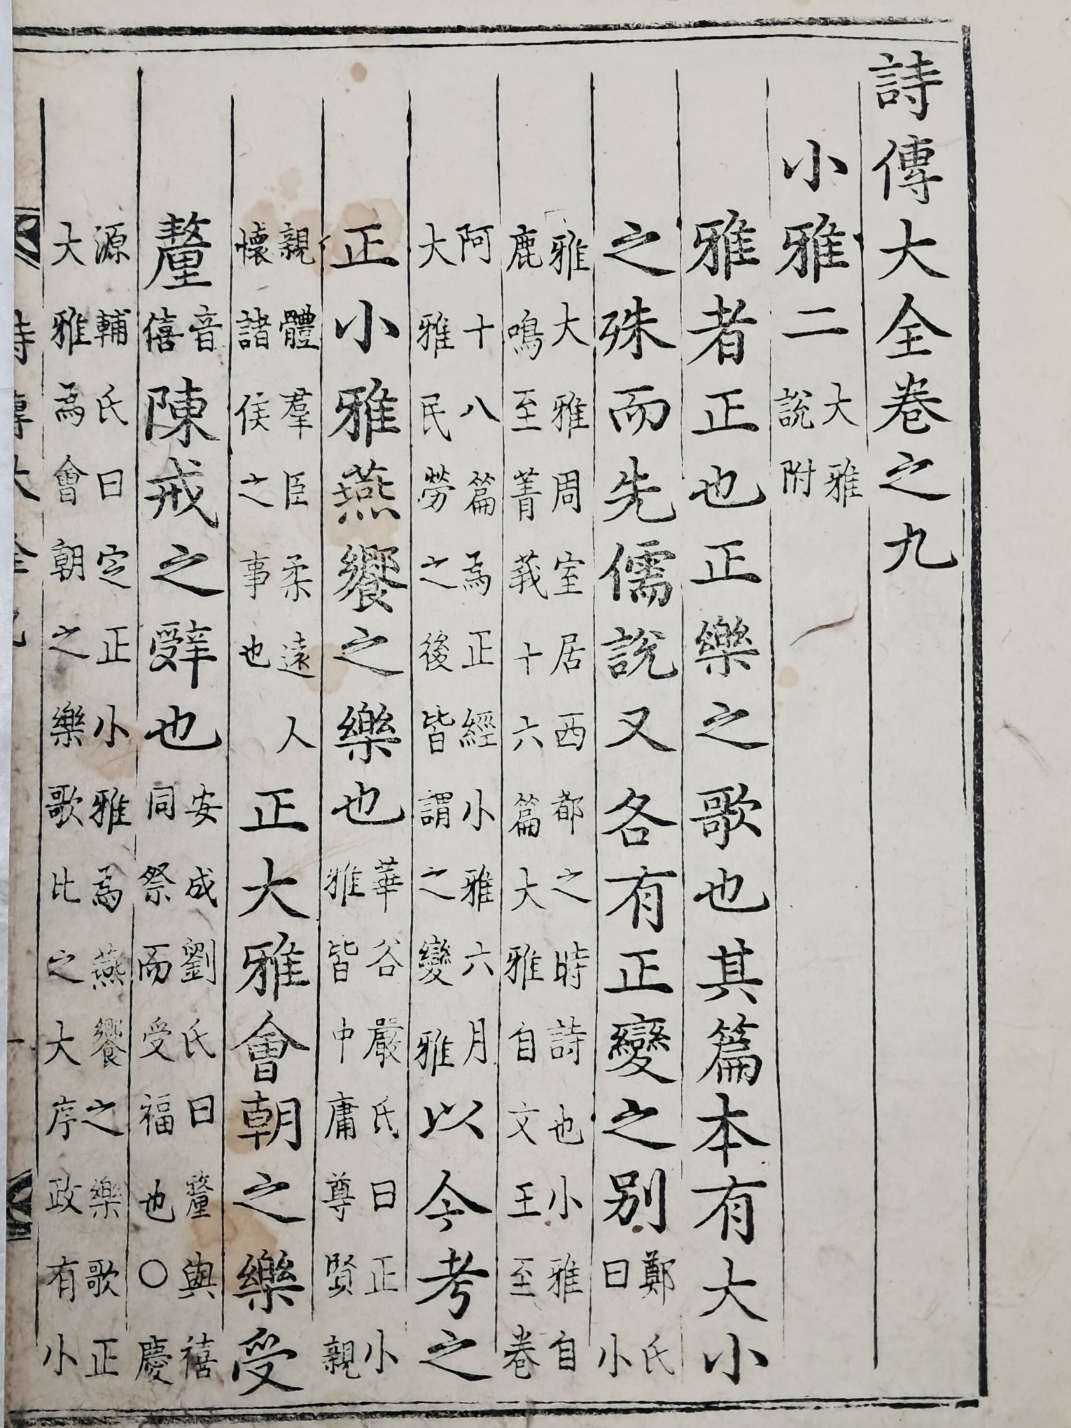 詩傳大全卷之九
小雅二大雅說附
雅者正也正樂之歌也其篇本有大小
之殊而先儒說又各有正變之別鄭氏曰小
雅大雅周室居西都之時詩也小雅自鹿鳴至菁莪十六篇大雅自文王至卷
阿十八篇為正經小雅六月大雅民勞之後皆謂之變雅以今考之
正小雅燕饗之樂也華谷嚴氏曰正小雅皆中庸尊賢親
親體羣臣柔遠人懷諸侯之事也正大雅會朝之樂受
釐音僖陳戒之辭也安成劉氏曰釐與禧同祭而受福也○慶
源輔氏曰定正小雅為燕饗之樂歌正大雅為會朝之樂歌比之大序政有小